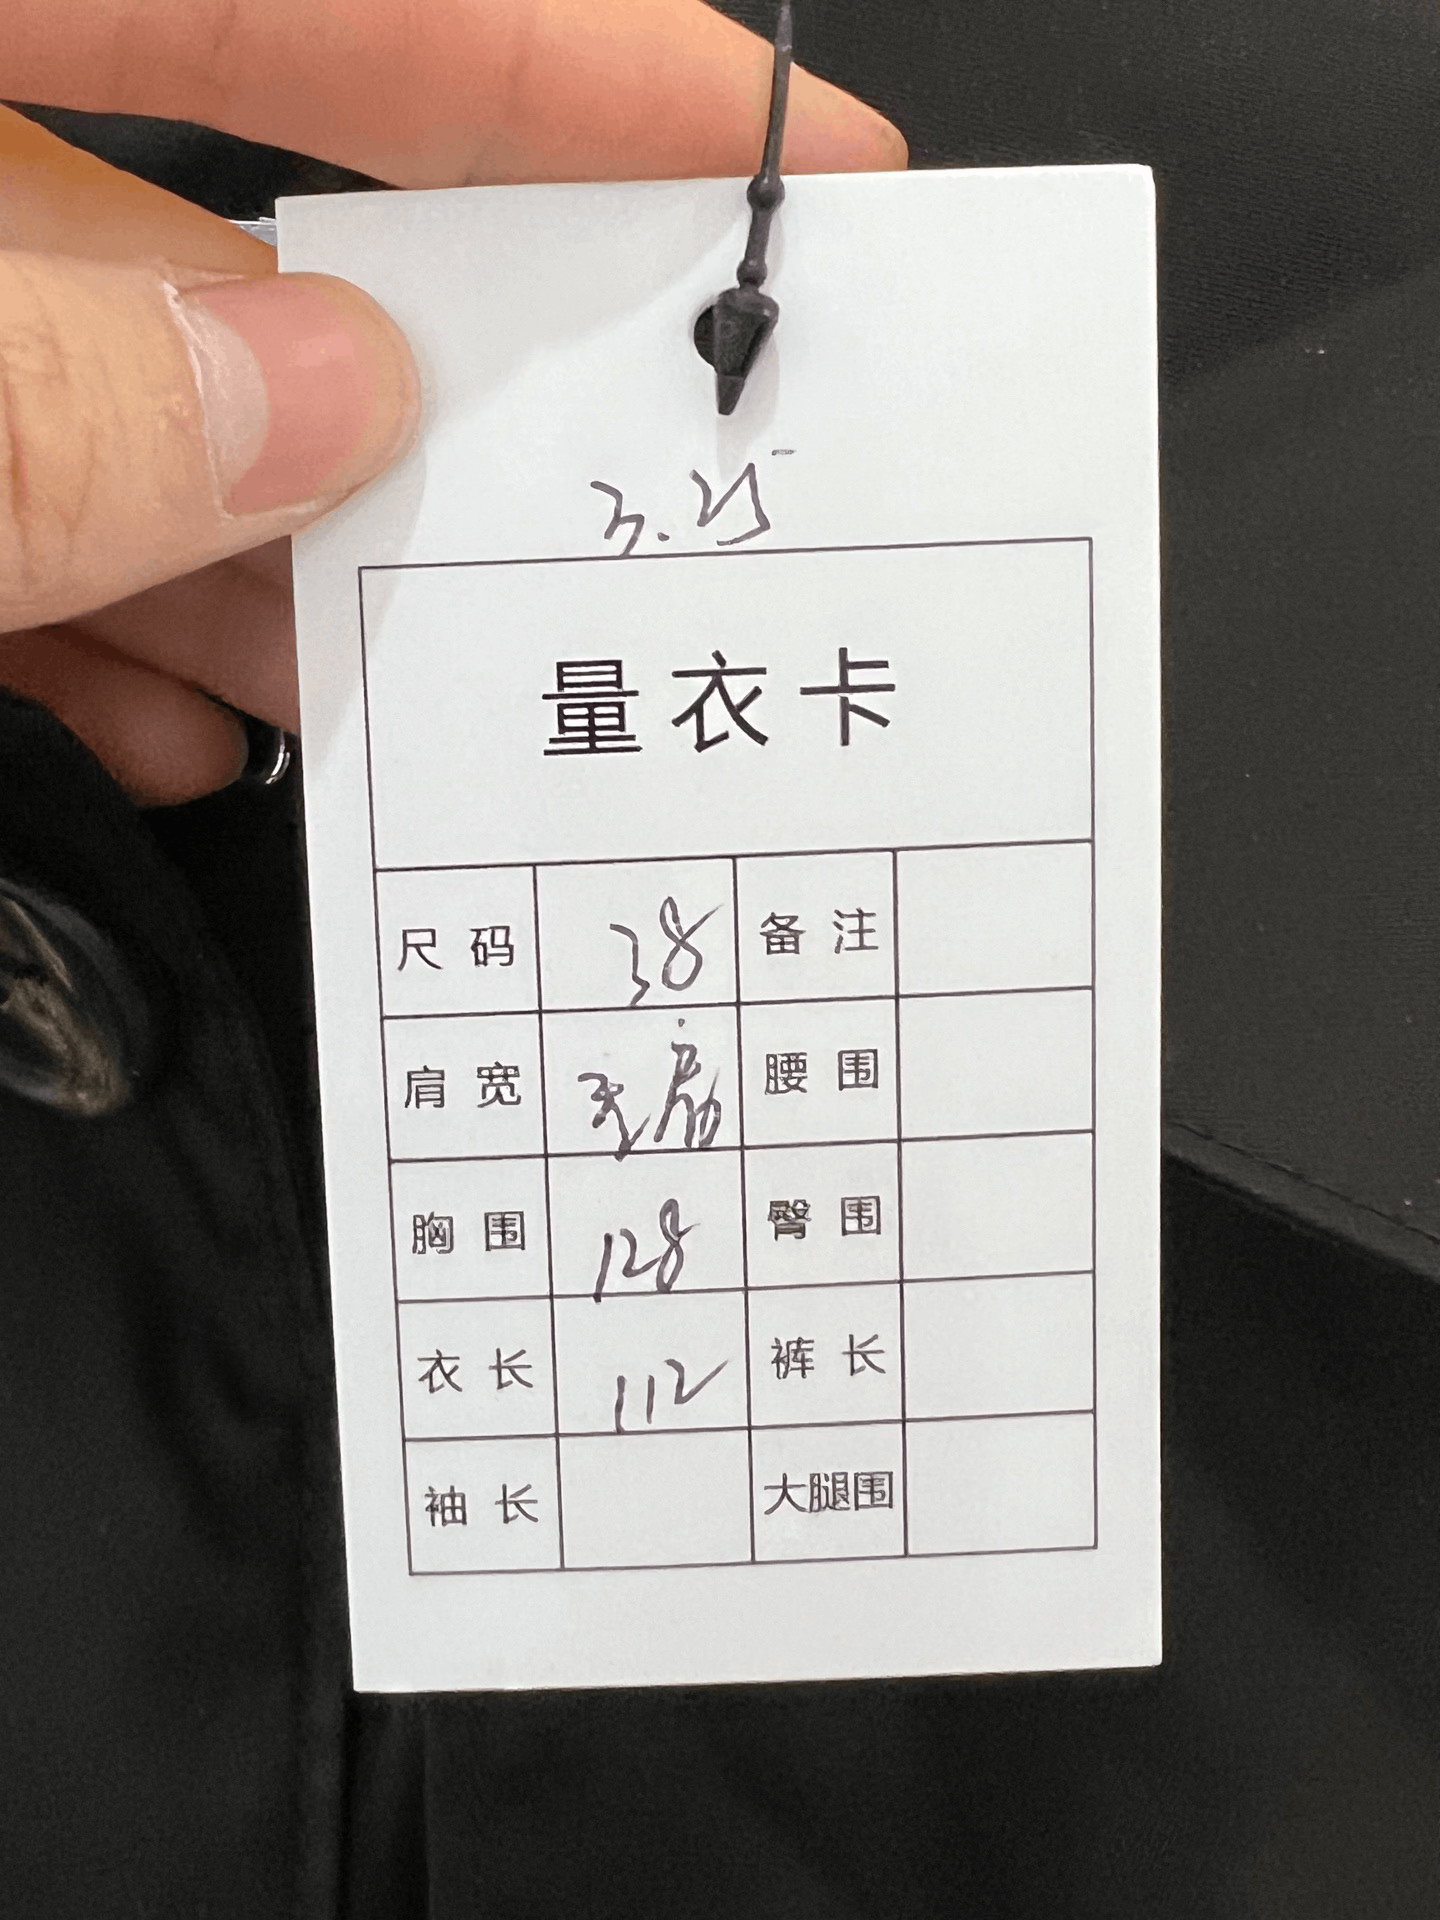 3.25
量衣卡
尺码 38 备注
肩宽 腰围
胸围 128 臀围
衣长 112 裤长
袖长 大腿围